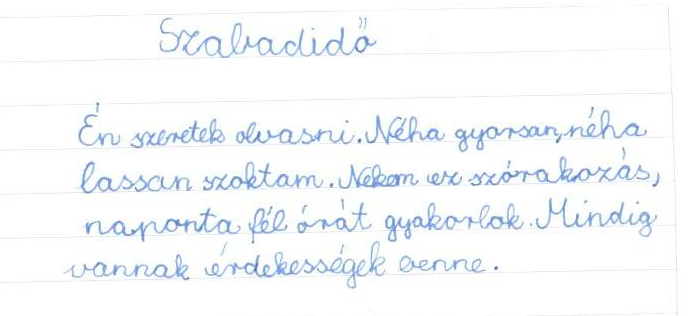 Szabadidő
Én szeretek olvasni. Néha gyorsan, néha
lassan szoktam. Nekem ez szórakozás,
naponta fél órát gyakorlok. Mindig
vannak érdekességek benne.